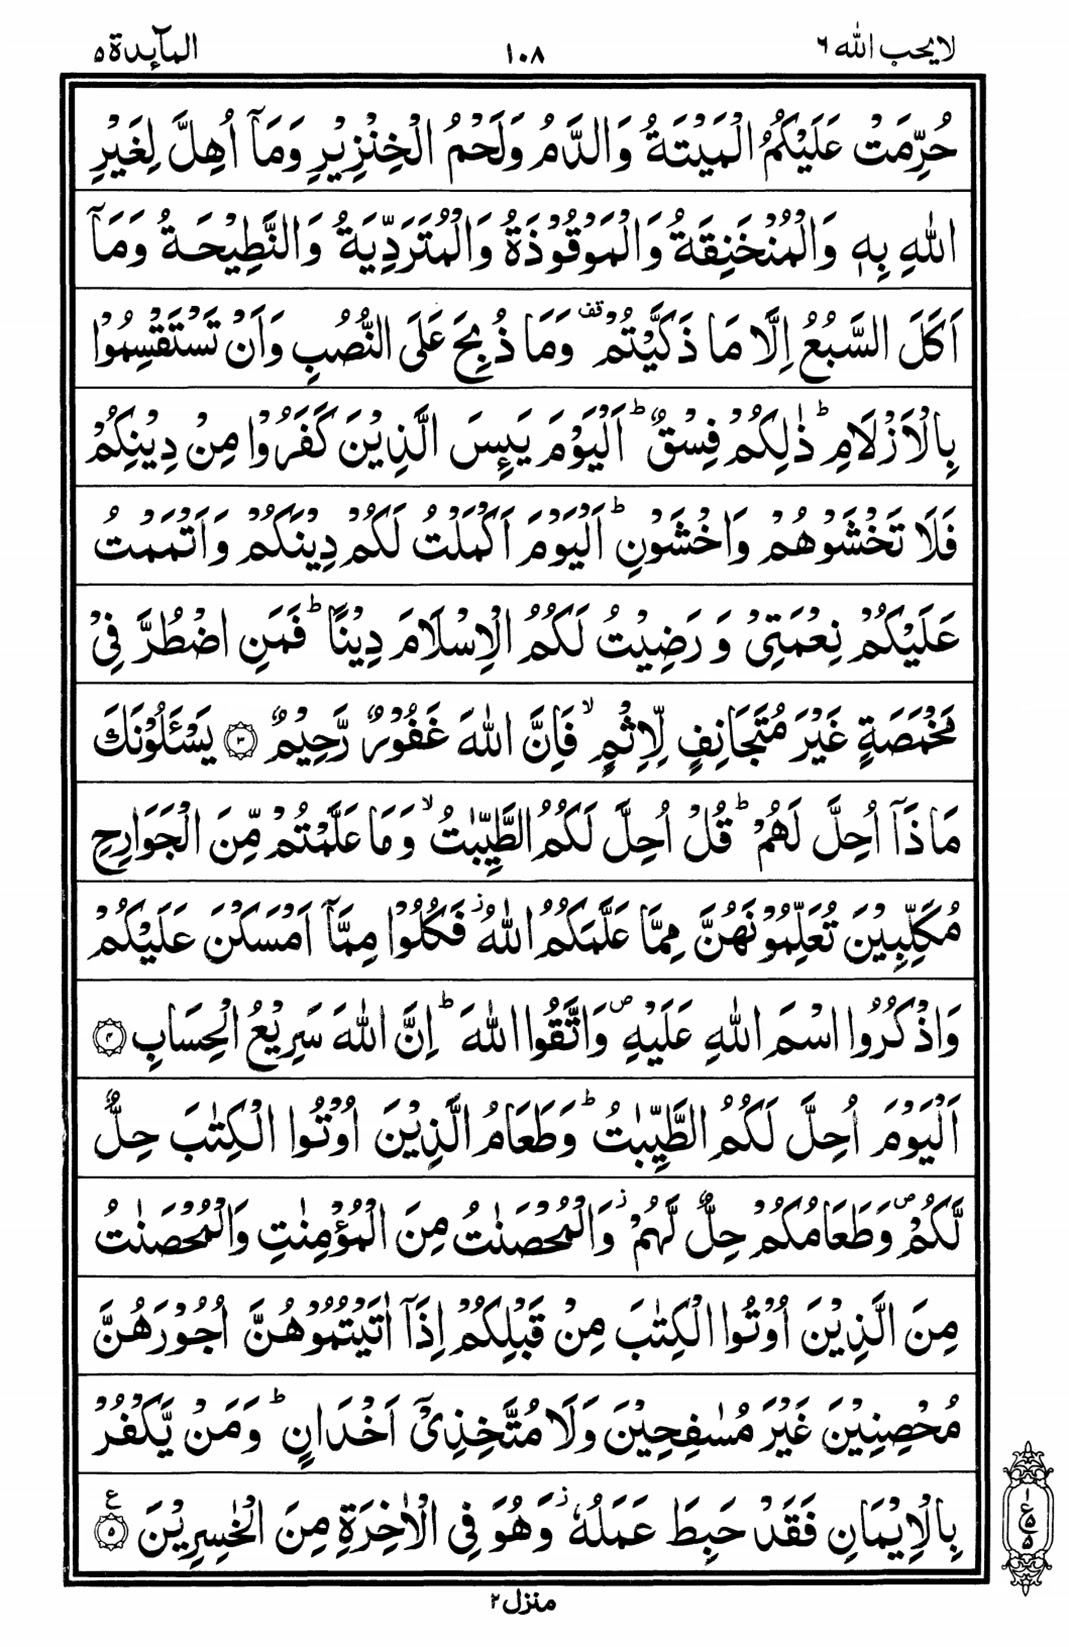 لا يحب الله ٦ ١٠٨ المآئدة ٥
حُرِّمَتْ عَلَيْكُمُ الْمَيْتَةُ وَالدَّمُ وَلَحْمُ الْخِنْزِيْرِ وَمَاۤ اُهِلَّ لِغَيْرِ
اللّٰهِ بِهٖ وَالْمُنْخَنِقَةُ وَالْمَوْقُوْذَةُ وَالْمُتَرَدِّيَةُ وَالنَّطِيْحَةُ وَمَاۤ
اَكَلَ السَّبُعُ اِلَّا مَا ذَكَّيْتُمْ ࣞوقف وَمَا ذُبِحَ عَلَى النُّصُبِ وَاَنْ تَسْتَقْسِمُوْا
بِالْاَزْلَامِ ؕ ذٰلِكُمْ فِسْقٌ ؕ اَلْيَوْمَ يَىِٕسَ الَّذِيْنَ كَفَرُوْا مِنْ دِيْنِكُمْ
فَلَا تَخْشَوْهُمْ وَاخْشَوْنِ ؕ اَلْيَوْمَ اَكْمَلْتُ لَكُمْ دِيْنَكُمْ وَاَتْمَمْتُ
عَلَيْكُمْ نِعْمَتِيْ وَ رَضِيْتُ لَكُمُ الْاِسْلَامَ دِيْنًا ؕ فَمَنِ اضْطُرَّ فِيْ
مَخْمَصَةٍ غَيْرَ مُتَجَانِفٍ لِّاِثْمٍ ۙ فَاِنَّ اللّٰهَ غَفُوْرٌ رَّحِيْمٌ ۝٣ يَسْـَٔلُوْنَكَ
مَاذَاۤ اُحِلَّ لَهُمْ ؕ قُلْ اُحِلَّ لَكُمُ الطَّيِّبٰتُ ۙ وَمَا عَلَّمْتُمْ مِّنَ الْجَوَارِحِ
مُكَلِّبِيْنَ تُعَلِّمُوْنَهُنَّ مِمَّا عَلَّمَكُمُ اللّٰهُ ؗ فَكُلُوْا مِمَّاۤ اَمْسَكْنَ عَلَيْكُمْ
وَاذْكُرُوا اسْمَ اللّٰهِ عَلَيْهِ ۪ وَاتَّقُوا اللّٰهَ ؕ اِنَّ اللّٰهَ سَرِيْعُ الْحِسَابِ ۝٤
اَلْيَوْمَ اُحِلَّ لَكُمُ الطَّيِّبٰتُ ؕ وَطَعَامُ الَّذِيْنَ اُوْتُوا الْكِتٰبَ حِلٌّ
لَّكُمْ ۪ وَطَعَامُكُمْ حِلٌّ لَّهُمْ ؗ وَالْمُحْصَنٰتُ مِنَ الْمُؤْمِنٰتِ وَالْمُحْصَنٰتُ
مِنَ الَّذِيْنَ اُوْتُوا الْكِتٰبَ مِنْ قَبْلِكُمْ اِذَاۤ اٰتَيْتُمُوْهُنَّ اُجُوْرَهُنَّ
مُحْصِنِيْنَ غَيْرَ مُسٰفِحِيْنَ وَلَا مُتَّخِذِيْۤ اَخْدَانٍ ؕ وَمَنْ يَّكْفُرْ
بِالْاِيْمَانِ فَقَدْ حَبِطَ عَمَلُهٗ ؗ وَهُوَ فِي الْاٰخِرَةِ مِنَ الْخٰسِرِيْنَ ۝٥ ع
١ ع ٥ ٥
منزل ٢